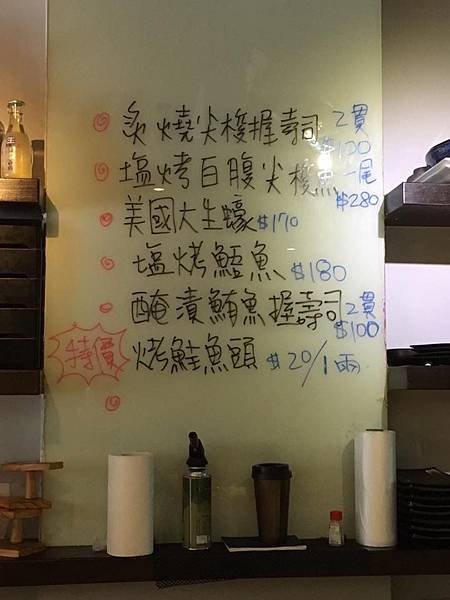 炙燒尖梭握壽司 2貫 $100
塩烤白腹尖梭魚 一尾 $280
美國大生蠔 $170
塩烤鱈魚 $180
醃漬鮪魚握壽司 2貫 $100
特價 烤鮭魚頭 $20/1兩